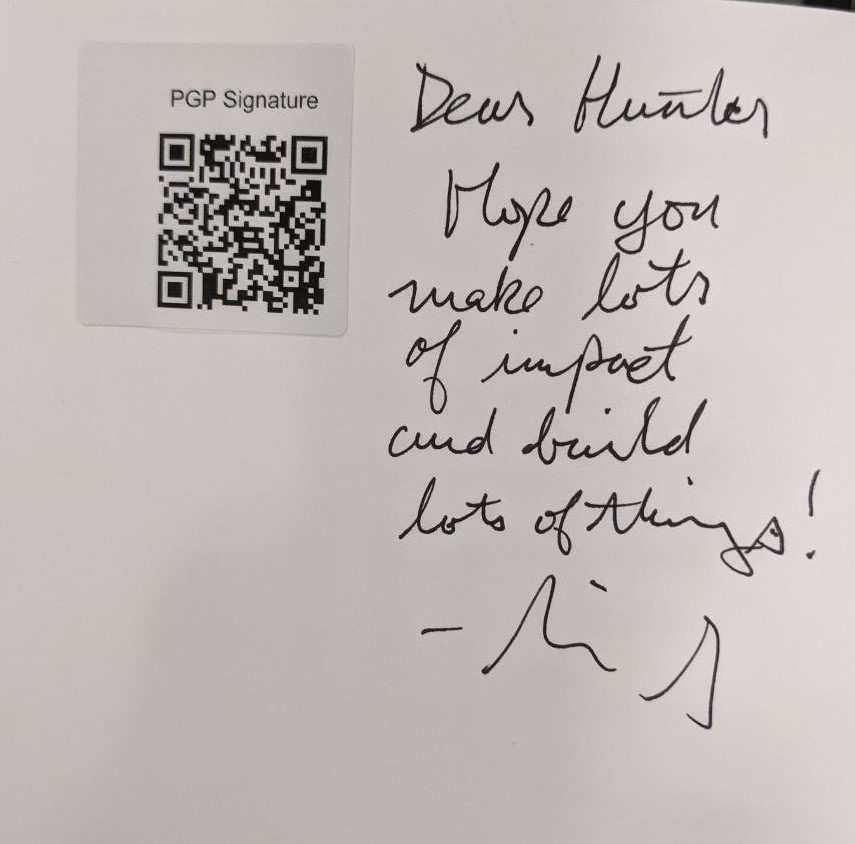 PGP Signature
Dear Hunter
Hope you
make lots
of impact
and build
lots of things!